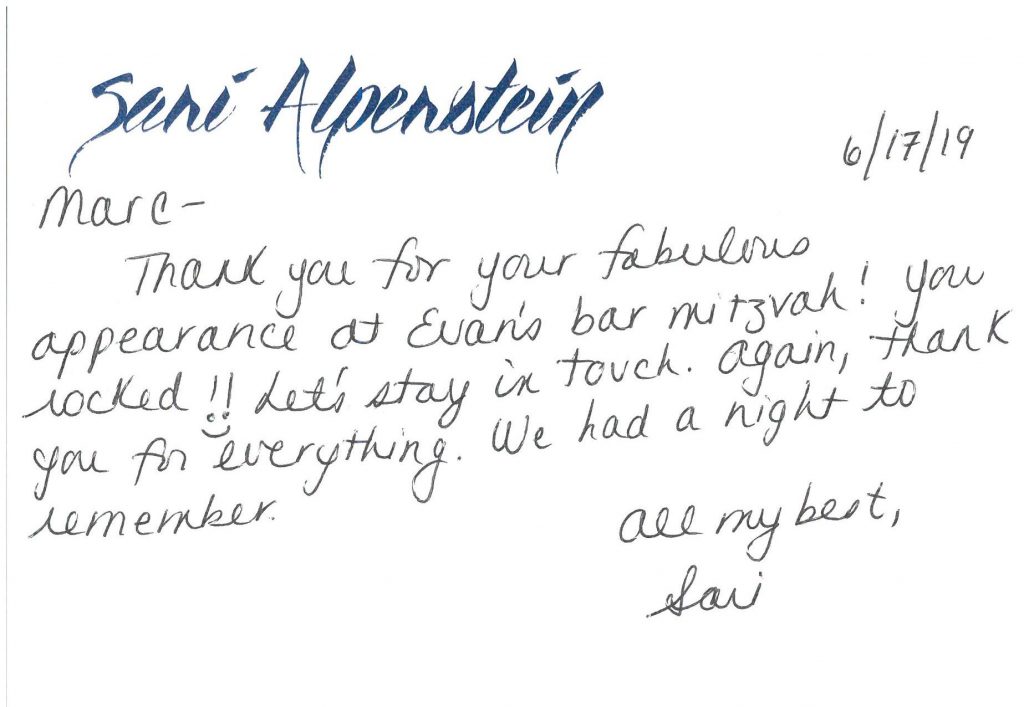 Sari Alpenstein
6/17/19
Marc-
Thank you for your fabulous
appearance at Evan's bar mitzvah! You
rocked!! Let's stay in touch. Again, thank
you for everything. We had a night to
remember.
All my best,
Sari